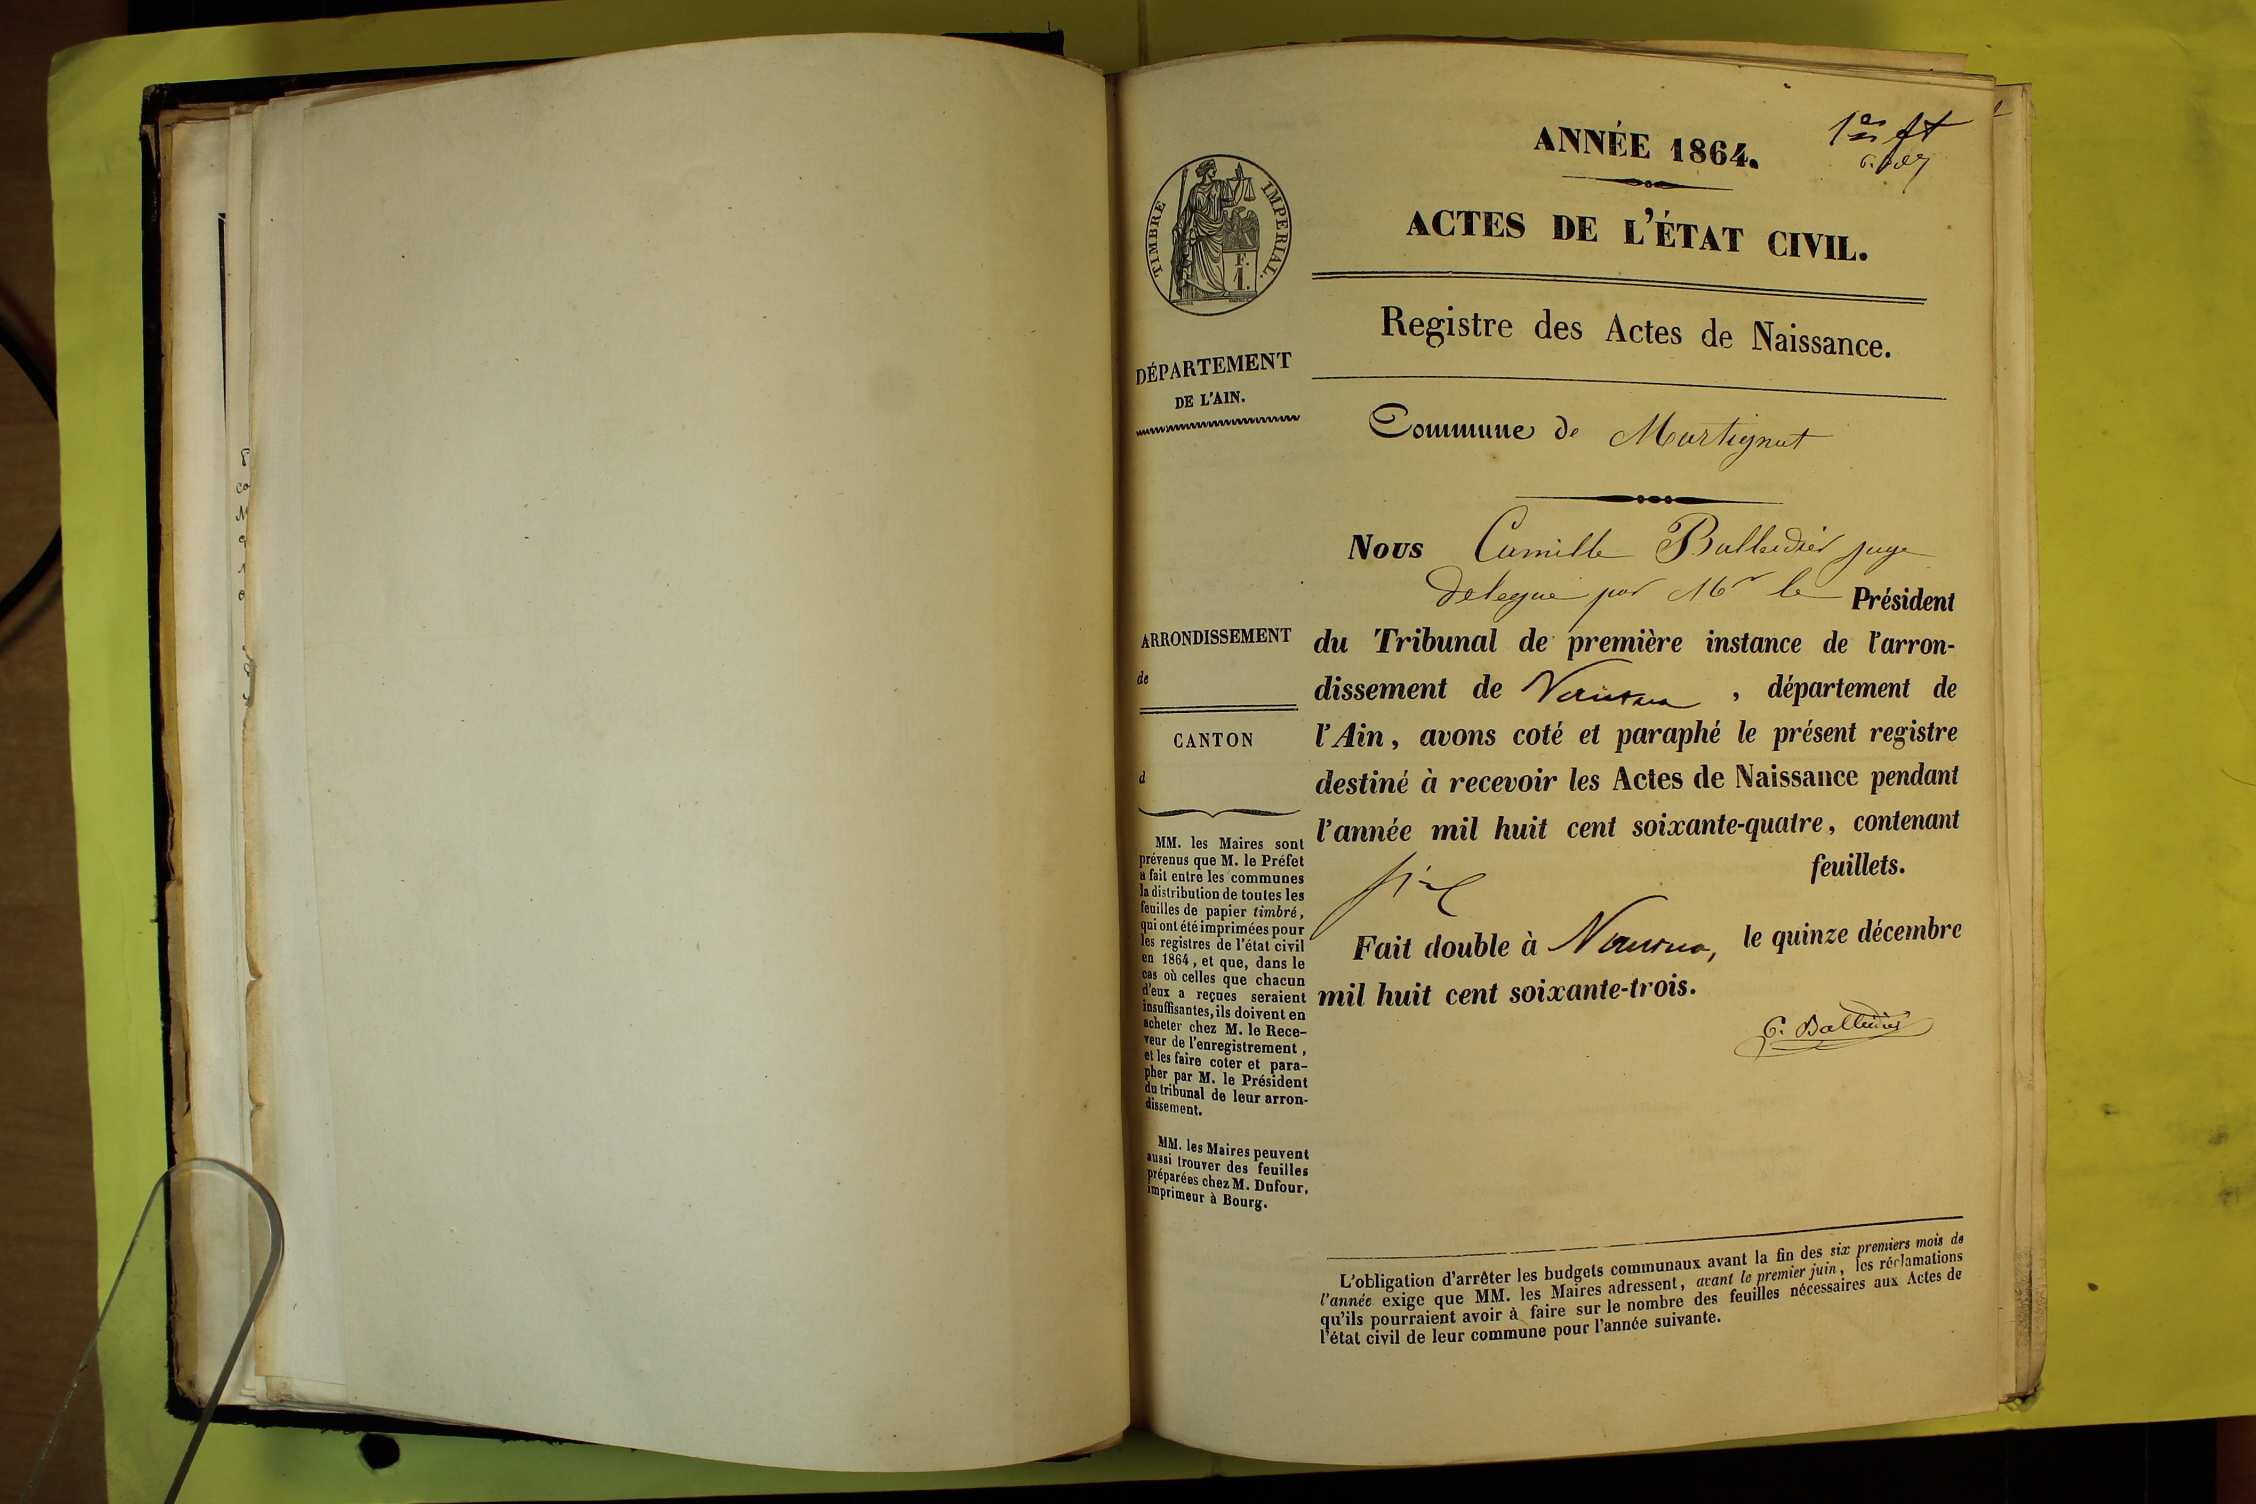 ANNÉE 1864.
ACTES DE L'ÉTAT CIVIL.
TIMBRE IMPERIAL.
F.
1.
Registre des Actes de Naissance.
DÉPARTEMENT
DE L'AIN.
Commune de Martignat
Nous Camille Balleidier juge
délégué par Mr le Président
du Tribunal de première instance de l'arron-
dissement de Nantua, département de
l'Ain, avons coté et paraphé le présent registre
destiné à recevoir les Actes de Naissance pendant
l'année mil huit cent soixante-quatre, contenant
six feuillets.
Fait double à Nantua, le quinze décembre
mil huit cent soixante-trois.
C. Balleidier
ARRONDISSEMENT
de
CANTON
d
MM. les Maires sont
prévenus que M. le Préfet
a fait entre les communes
la distribution de toutes les
feuilles de papier timbré,
qui ont été imprimées pour
les registres de l'état civil
en 1864, et que, dans le
cas où celles que chacun
d'eux a reçues seraient
insuffisantes, ils doivent en
acheter chez M. le Rece-
veur de l'enregistrement,
et les faire coter et para-
pher par M. le Président
du tribunal de leur arron-
dissement.
MM. les Maires peuvent
aussi trouver des feuilles
préparées chez M. Dufour,
imprimeur à Bourg.
L'obligation d'arrêter les budgets communaux avant la fin des six premiers mois de
l'année exige que MM. les Maires adressent, avant le premier juin, les réclamations
qu'ils pourraient avoir à faire sur le nombre des feuilles nécessaires aux Actes de
l'état civil de leur commune pour l'année suivante.